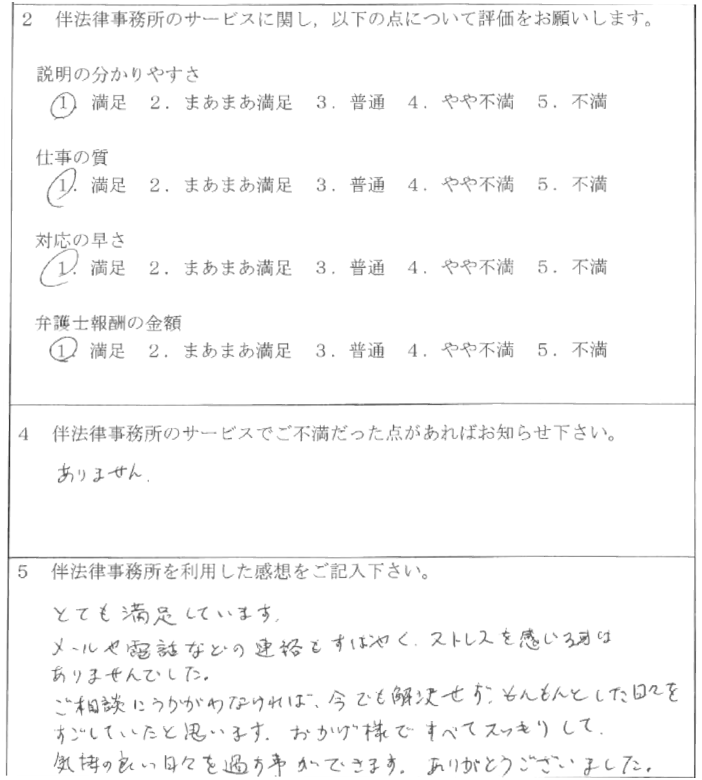 2 伴法律事務所のサービスに関し，以下の点について評価をお願いします。
説明の分かりやすさ
1. 満足 2. まあまあ満足 3. 普通 4. やや不満 5. 不満
仕事の質
1. 満足 2. まあまあ満足 3. 普通 4. やや不満 5. 不満
対応の早さ
1. 満足 2. まあまあ満足 3. 普通 4. やや不満 5. 不満
弁護士報酬の金額
1. 満足 2. まあまあ満足 3. 普通 4. やや不満 5. 不満
4 伴法律事務所のサービスでご不満だった点があればお知らせ下さい。
ありません.
5 伴法律事務所を利用した感想をご記入下さい。
とても満足しています.
メールや電話などの連絡もすばやく、ストレスを感じる事は
ありませんでした。
ご相談にうかがわなければ、今でも解決せず、もんもんとした日々を
すごしていたと思います. おかげ様ですべてスッキリして、
気持の良い日々を過す事ができます. ありがとうございました。